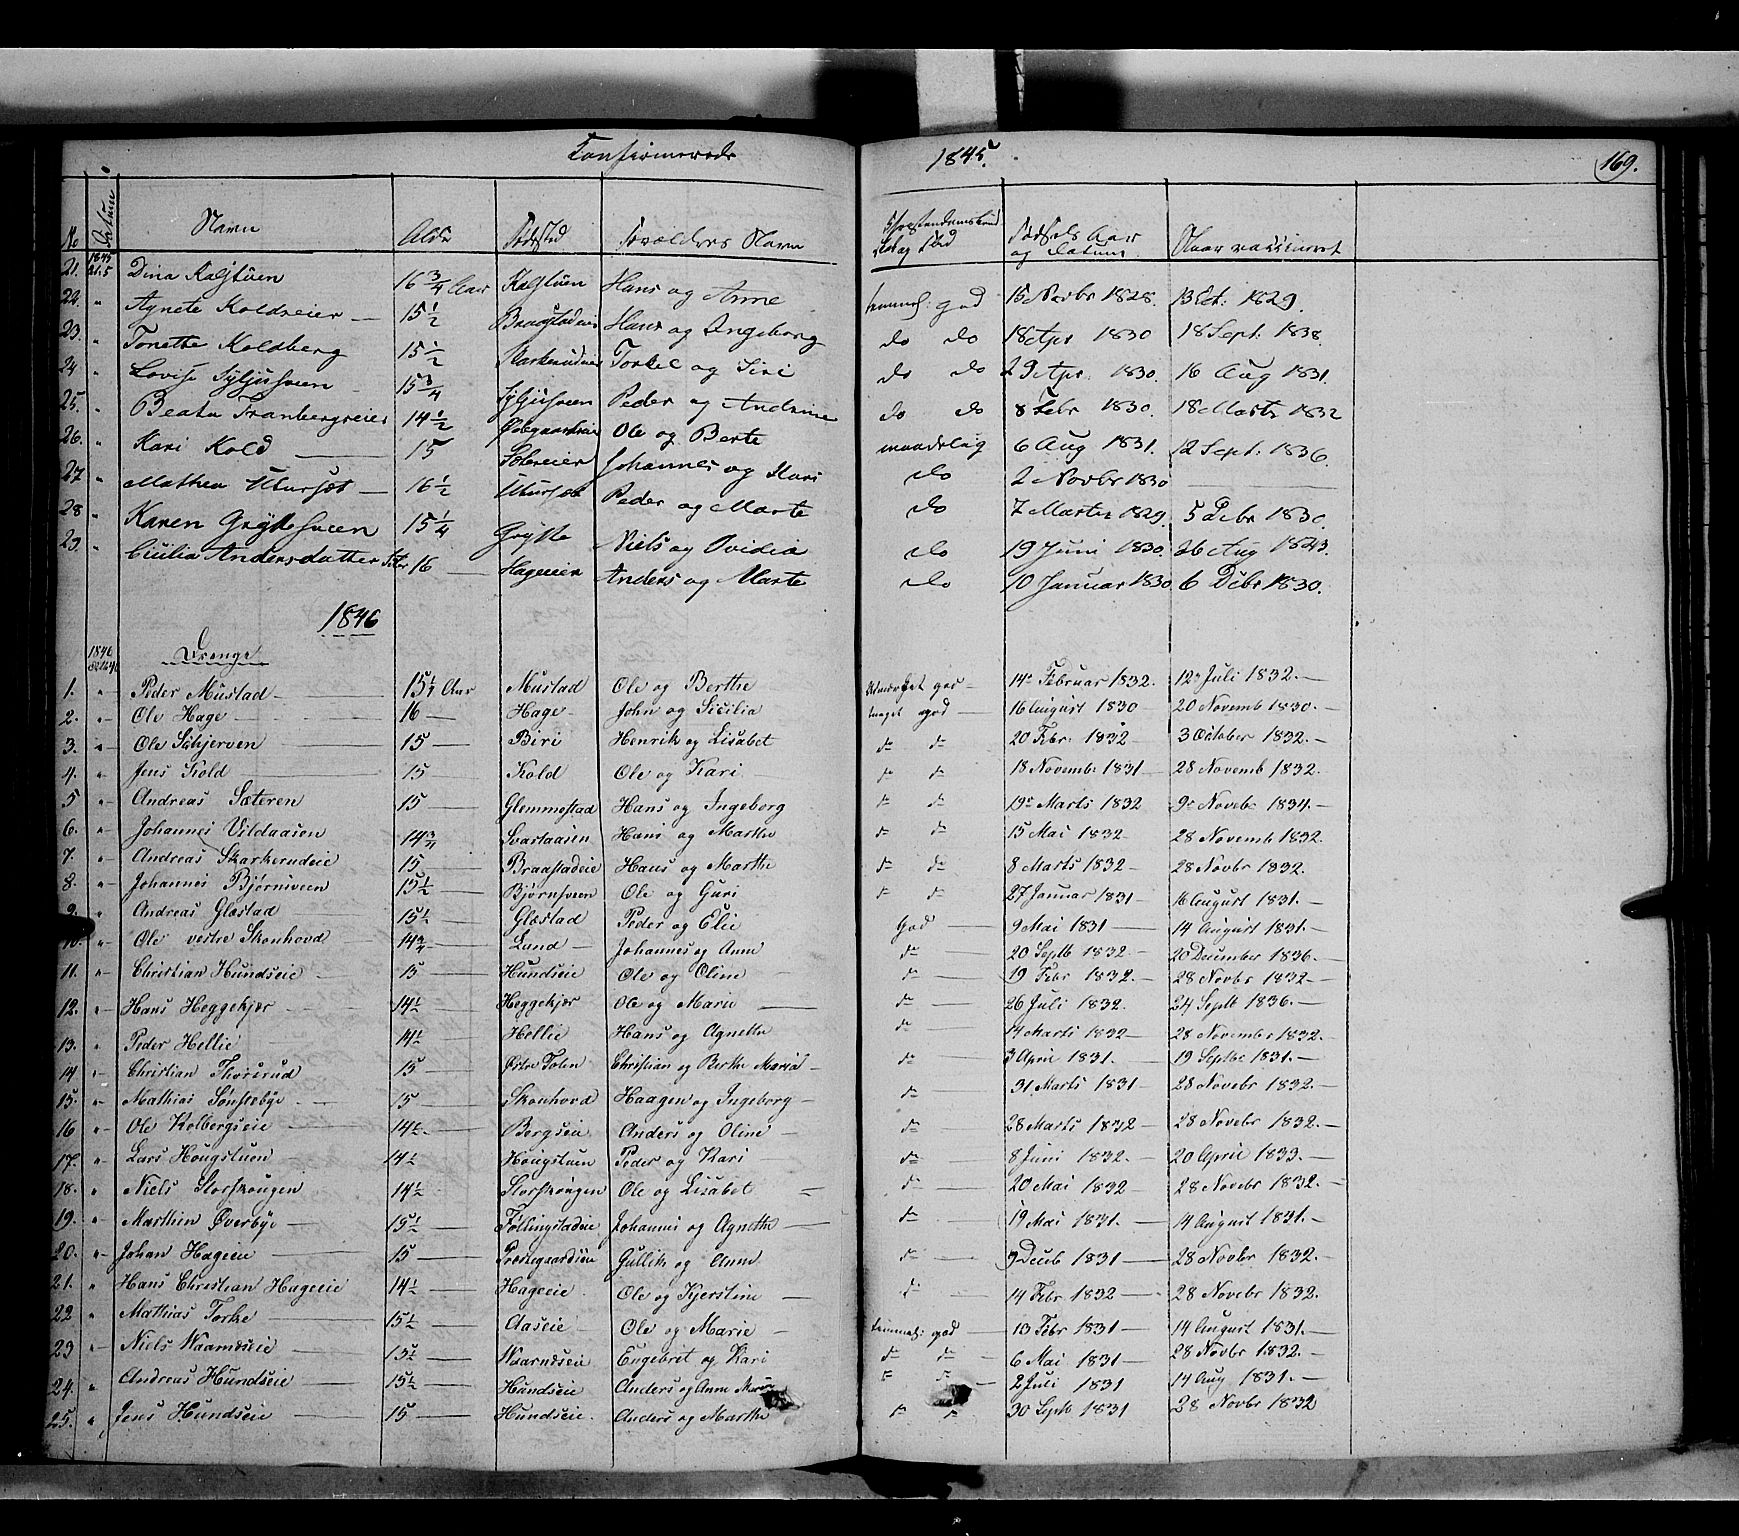 Confirmerede 1845. 169.
No Datum Navn Alder Fødested Forældres Navn Christendomskundskab og Flid Fødsels Aar og Datum Naar vaccineret
21. 1845 Dina 16 3/4 Aar Hans og Anne temmel: god 15 Novbr 1828. 13 Oct: 1829.
22. " Agnete Koldseier — 15 1/2 Hans og Ingeborg do do 18 Apr 1830 18 Sept. 1838.
23. " Tonette Koldberg 15 1/2 Torkel og Siri do do 29 Apr. 1830. 16 Aug 1831.
24 " Lovise Syljusveen 15 3/4 Syljusveen Peder og Andrine do do 8 Febr 1830. 18 Marts 1832
25. " Beata Tranbergseier 14 1/2 Ole og Berte maadelig 6 Aug 1831. 12 Sept. 1836.
26. " Kari Kold — 15 Johannes og Kari do 2 Novbr 1830 —
27 " Mathea — 16 1/2 Peder og Marte do 7 Marts 1829. 5 Debr 1830.
28 " Karen Gryttesveen 15 1/4 Grytte Niels og Ovidia do 19 Juni 1830. 26 Aug 1843.
29. " Cicilia Andersdatter 16 — Hageeier Anders og Marte do 10 Januar 1830. 6 Debr 1830.
1846
1846 Drenge
1. " Peder Mustad — 15 1/4 Aar Mustad Ole og Berthe god — 14de Februar 1832. 12te Juli 1832. —
2. " Ole Hage — 16 — Hage — John og Sicilia meget god — 16 August 1830 20 Novemb 1830. —
3. " Ole Schjerven — 15 — Biri Henrik og Lisabet do do 20 Febr. 1832 3 October 1832. —
4. " Jens Kold — 15 Kold Ole og Kari — do do 18 Novembr 1831 — 28 Novemb 1832.
5 " Andreas Sæteren 15 — Glemmestad Hans og Ingeborg do do 19de Marts 1832 9de Novebr 1834. —
6. " Johannes Vildaasen 14 3/4 Svartaasen Hans og Marthe do do 15 Mai 1832 — 28 Novemb 1832.
7. " Andreas Skarkerudeie 15 — Braastadeie Hans og Marthe do do 8 Marts 1832 — 28 Novbr 1832.
8. " Johannes Bjørnsveen 15 1/2 — Bjørnsveen Ole og Guri do do 27 Januar 1831 — 16 August 1831. —
9. " Andreas Glæstad 15 1/2 — Glæstad Peder og Elie God — 9 Mai 1831 — 14 August 1831. —
10. " Ole vestre Skonhovd — 14 3/4 — Lund — Johannes og Anne do — 20 Septb 1832. — 20 December 1836. —
11. " Christian Hundseie — 15 — Hundseie Ole og Oline do — 19 Febr 1832. — 28 Novbr 1832 —
12. " Hans Heggekjær — 14 1/2 — Heggekjær Ole og Marie — do — 26 Juli 1832. 24 Septb 1836. —
13. " Peder Hellie — 14 1/2 — Hellie Hans og Agnethe do — 14 Marts 1832 — 28 November 1832.
14 " Christian Thorsrud 15 — Østre Toten Christian og Berthe Maria — do — 3 April 1831. — 19 Septbr 1831. —
15. " Mathias Sønstebye — 15 — Skonhovd Haagen og Ingeborg — do — 31 Marts 1831 — 28 Novebr 1832. —
16 " Ole Kolbergseie — 14 1/2 — Bergseie Anders og Oline — do — 28 Marts 1832 — 28 Novebr 1832. —
17. " Lars Hougstuen — 14 1/2 Hougstuen Peder og Kari do — 8 Juni 1832. — 20 April 1833. —
18. " Niels Storskougen 14 1/2 Storskougen Ole og Lisabet — do — 20 Mai 1832 — 28 Novebr 1832. —
19. " Marthin Øverbye — 15 1/2 — Føllingstadeie Johannes og Agnethe — do — 19 Mai 1831. — 14 August 1831. —
20. " Johan Hageeie — 15 — Præstegaardseie Gullik og Anne do — 9 Deceb 1831 — 28 Novbr 1832. —
21. " Hans Christian Hageeie 14 1/2 — Hageeie Ole og Kjerstine — do — 14 Febr 1832 — 28 Novebr 1832.
22 " Mathias Torke — 15 1/2 — Aaseie Ole og Marie — temmel: god — 13 Febr 1831 — 14 August 1831. —
23 " Niels Waarndseie — 15 1/2 — Waarndseie Engebret og Kari do do — 6 Mai 1831 — 28 Novbr 1832. —
24. " Andreas Hundseie — 15 1/2 — Hundseie Anders og Anne Marie do — 2 Juli 1831 14 Aug 1831. —
25. " Jens Hundseie — 15 — Hundseie. Anders og Marthe do do 30 Septb 1831 28 Novbr 1832